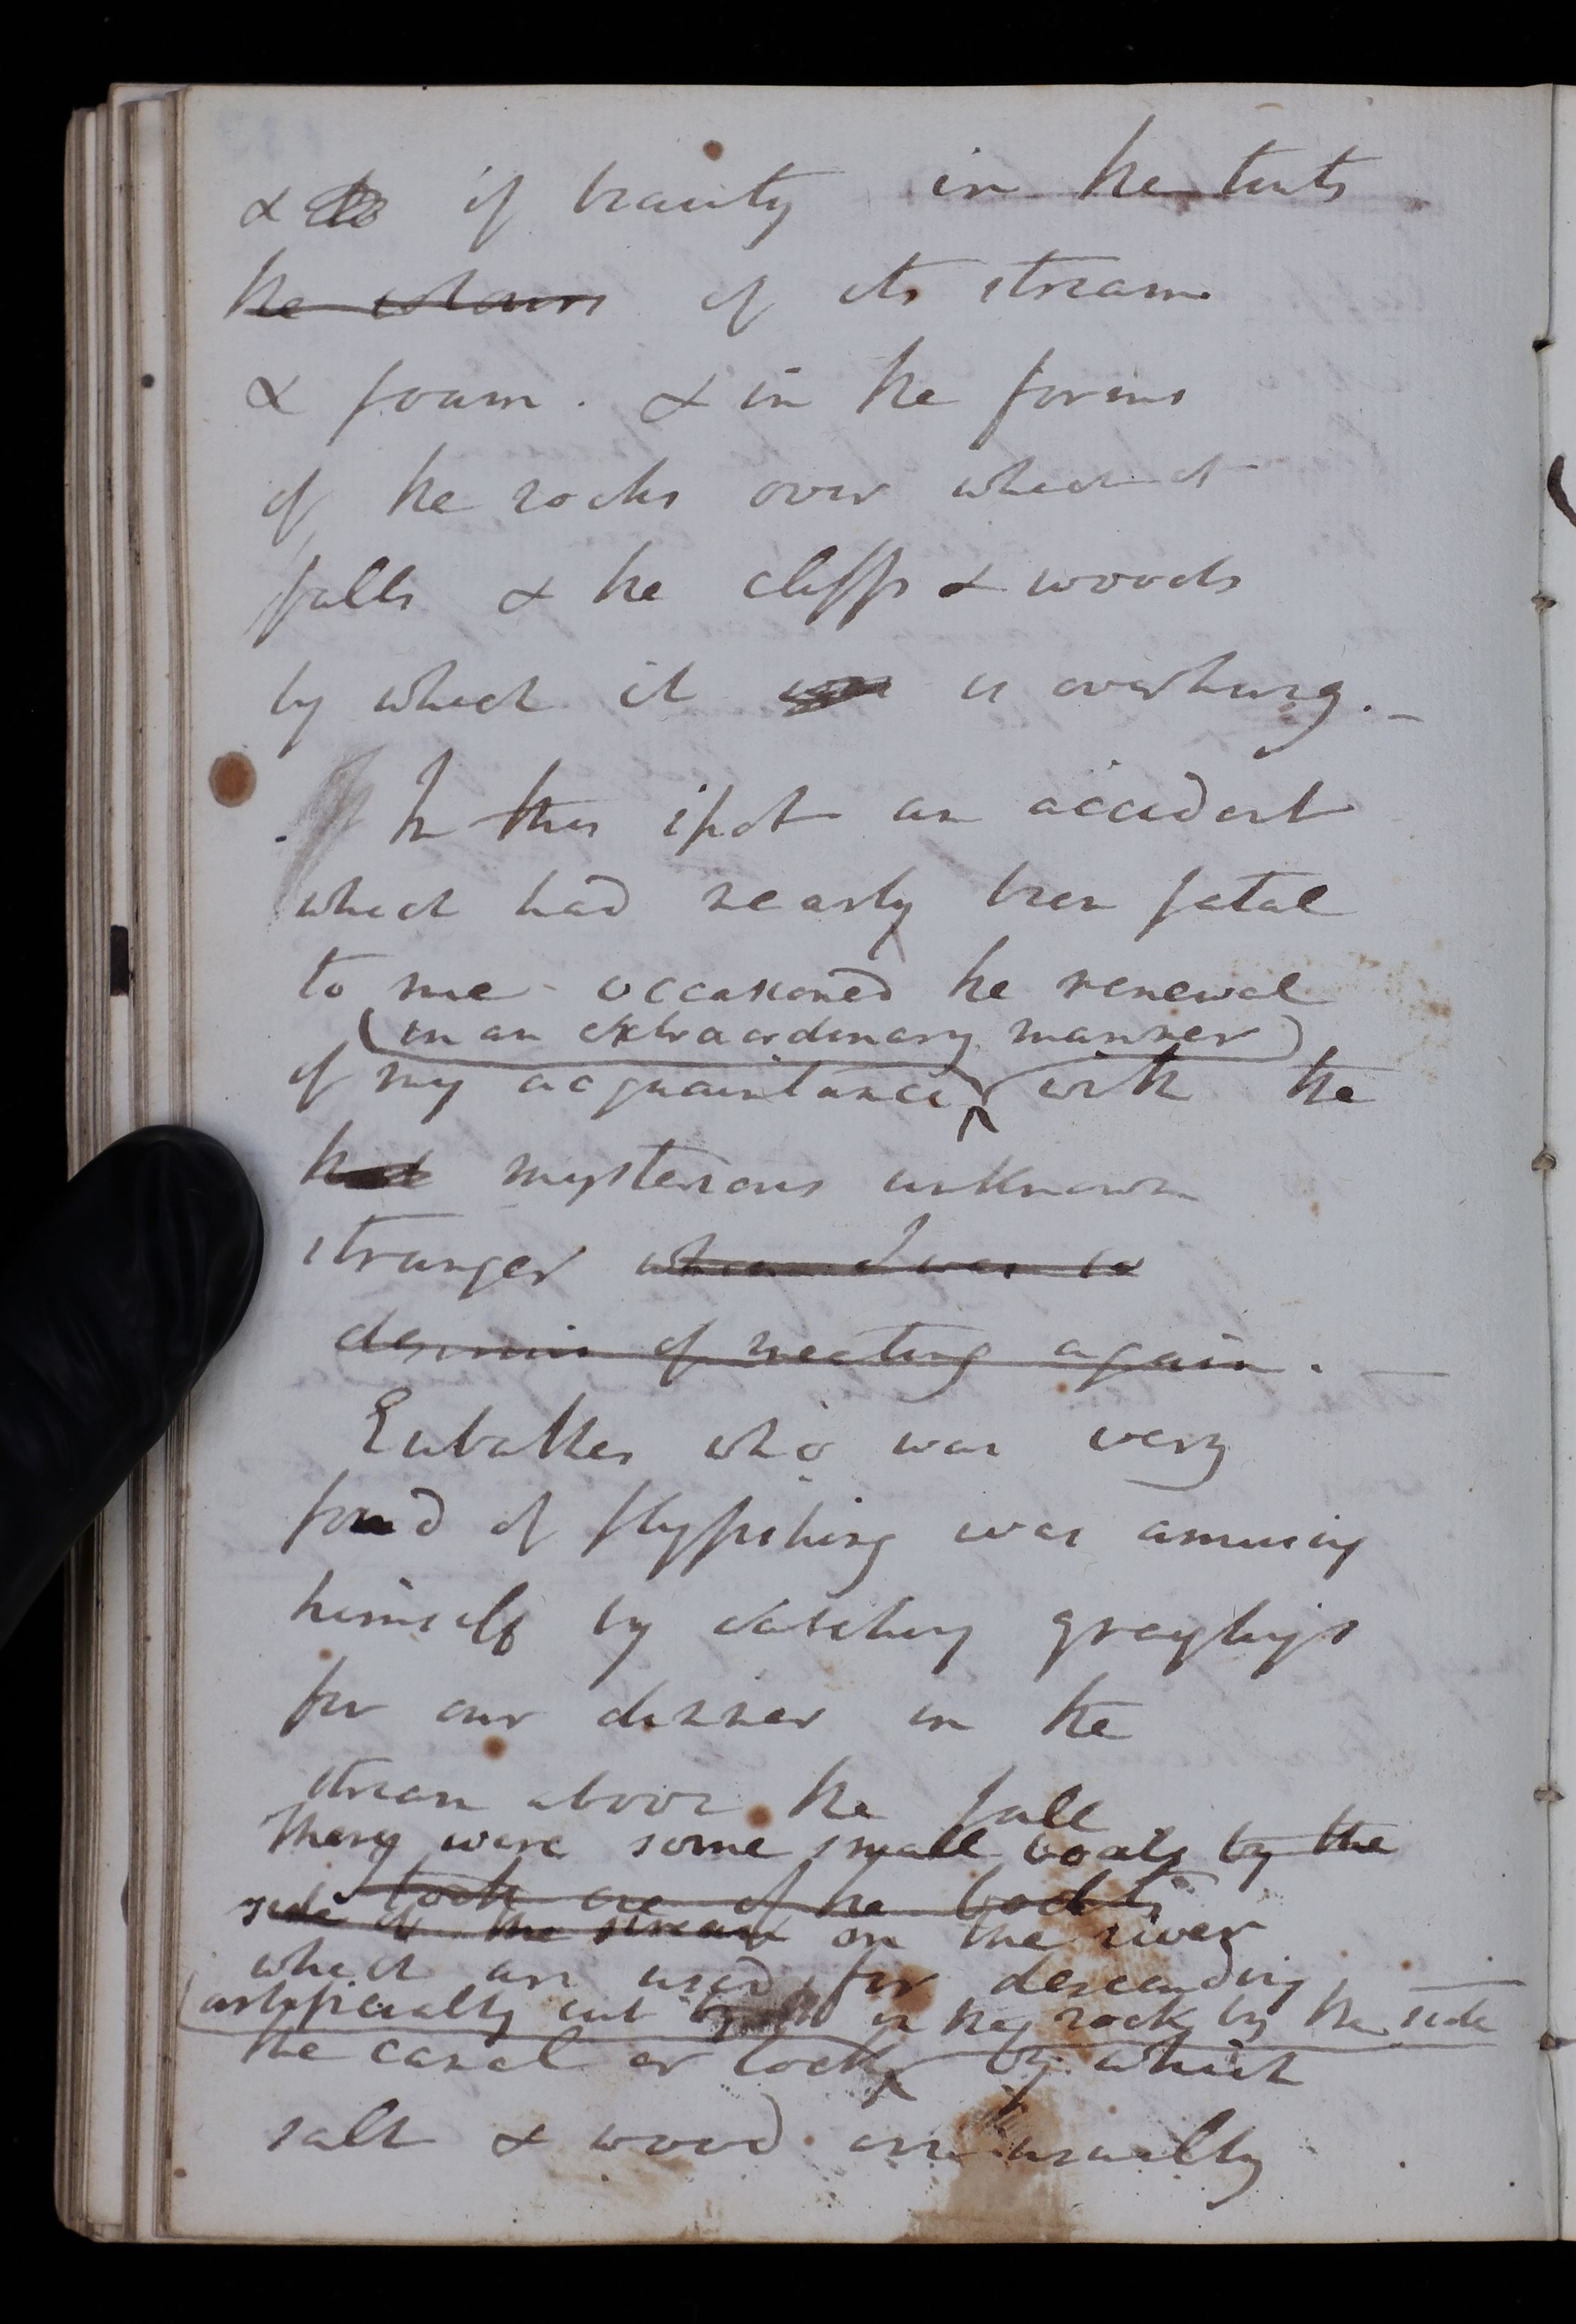 & of beauty in the tints
the colours of its stream
& foam. & in the forms
of the rocks over which it
falls & the cliffs & woods
by which it was is overhung. _
. In this spot an accident
which had nearly been fatal
to me occasioned the renewal
(in an extraordinary manner)
of my acquaintance with the
mysterious unknown
stranger whom I was so
desirous of meeting again. _
Eubathes who was very
fond of flyfishing was amusing
himself by catching graylings
for our dinner in the
stream above the fall
There were some small boats by the
took one of the boats
side of the stream on the river
which are used for descending
artificially cut in the rock by the side
the canal or lock by which
salt & wood are usually